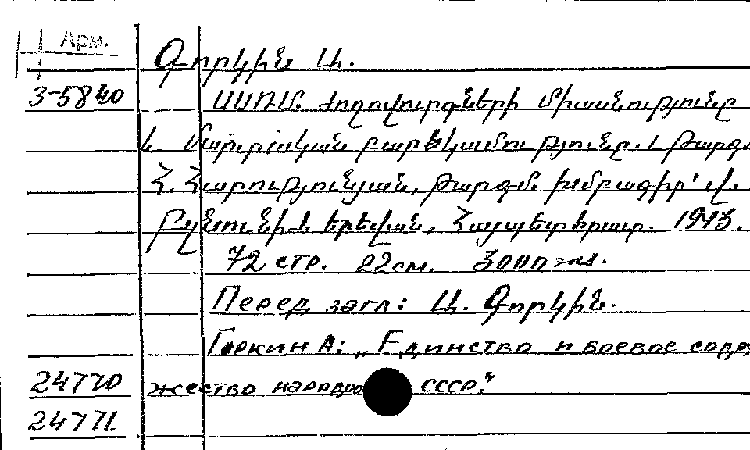 Арм.
Գորկին Ա.
3-5840 ՍՍՌՄ. ժողովուրդների միասնությունը
և մարտական բարեկամությունը. / Թարգմ
Հ. Հարությունյան, թարգմ. խմբագիր՝ Վ.
Բզնունի. և Երեվան, Հայպետհրատ. 1943.
72 стр. 22 см. 3000 экз.
Перед загл: Ա. Գորկին.
Горкин А: „Единство и боевое содр
24770 жество народов СССР."
24771.